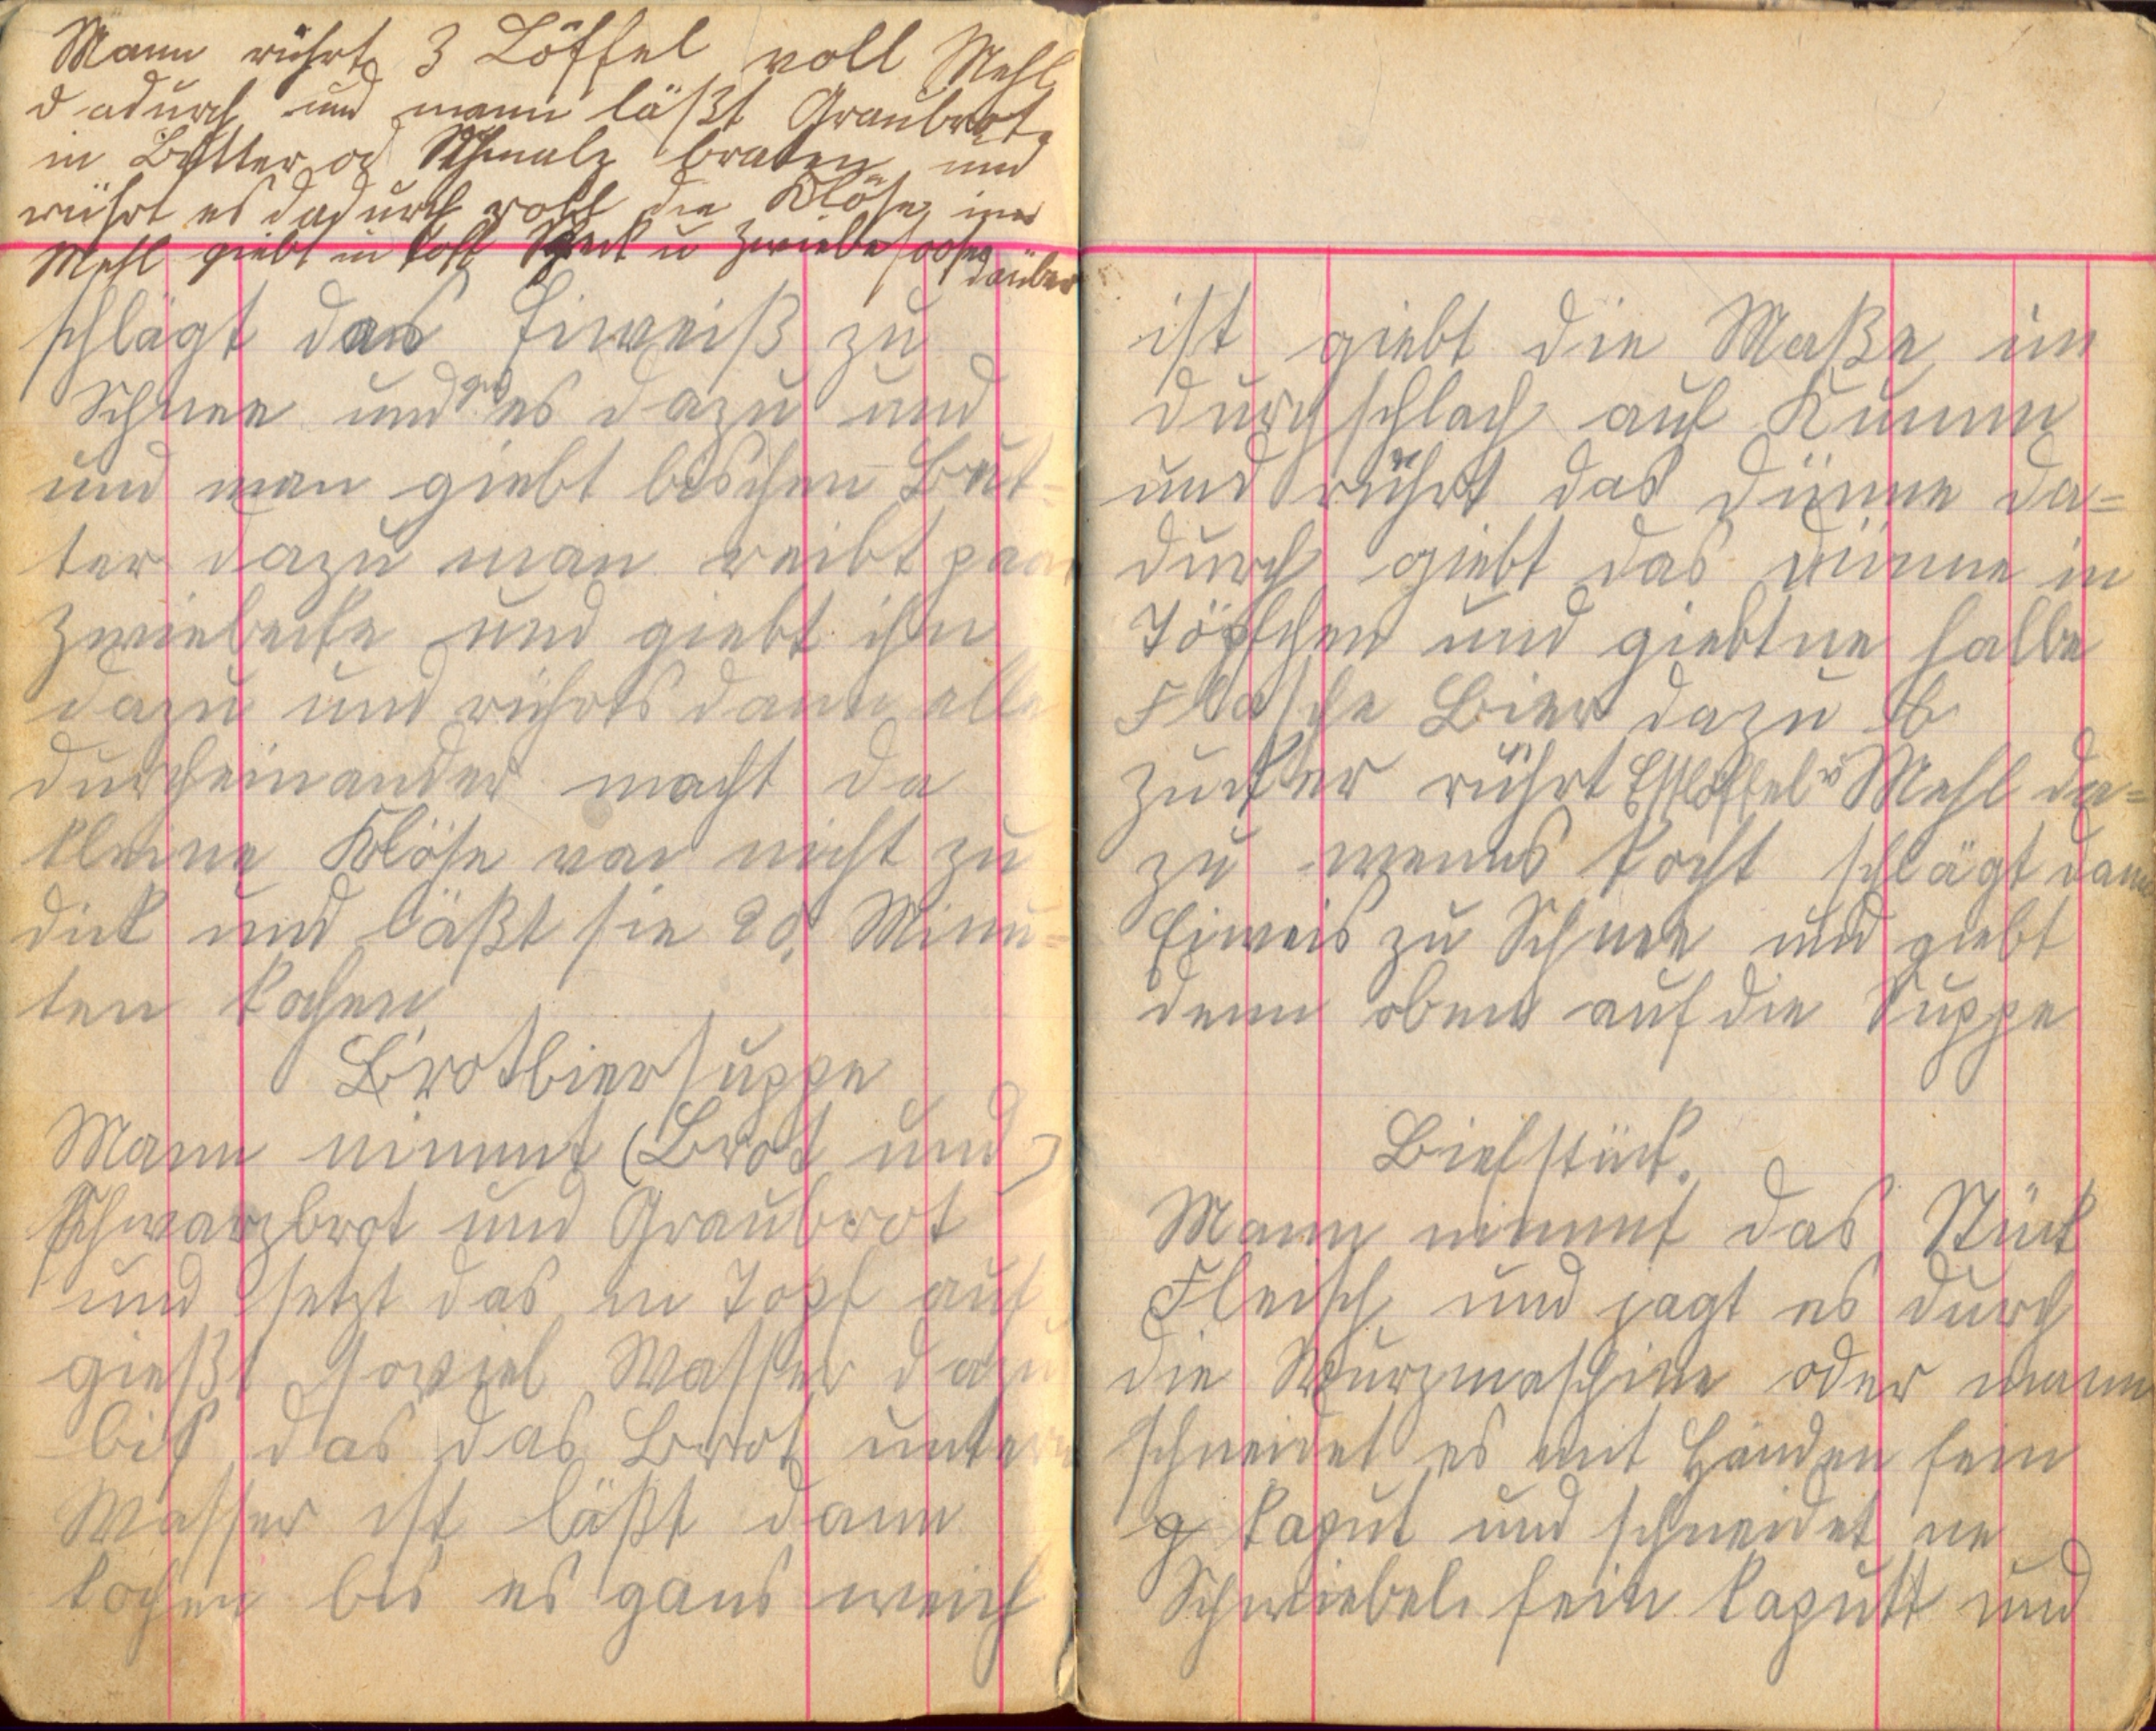 Mann rührt 3 Löffel voll Mehl
dadurch und mann läßt Graubrot
in Butter od Schmalz braten und
rührt es dadurch rollt die Klöse im
Mehl giebt in Speck u Zwiebelsoße
daüber
schlägt das Eiweiß zu
Schnee und es dazu und
und man giebt bischen But-
ter dazu man reibt paar
Zwiebecke und giebt ihn
dazu und rührts dann alle
durcheinander macht da
kleine Klöse van nicht zu
dick und läßt sie 20 Minu-
ten kochen
Brotbiersuppe
Mann nimmt (Brot und)
Schwarzbrot und Graubrot
und setzt das in Topf auf
gießt soviel Wasser dazu
bis das das Brot unterm
Wasser ist läßt dann
kochen bis es gans weich
ist giebt die Maße im
durchschlach auf Kumm
und rührt das dünne da-
durch giebt das dünne in
Töpfchen und giebt ne halbe
Flasche Bier dazu
Zucker rührt Esslöffel v Mehl da-
zu wenns kocht schlägt dann
Eiweis zu Schnee und giebt
denn oben auf die Suppe
Biefstück.
Mann nimmt das Stück
Fleisch und jagt es durch
die Wurzmaschine oder mann
schneidet es mit Händen fein
kaput und schneidet ne
Schwiebel fein kaputt und